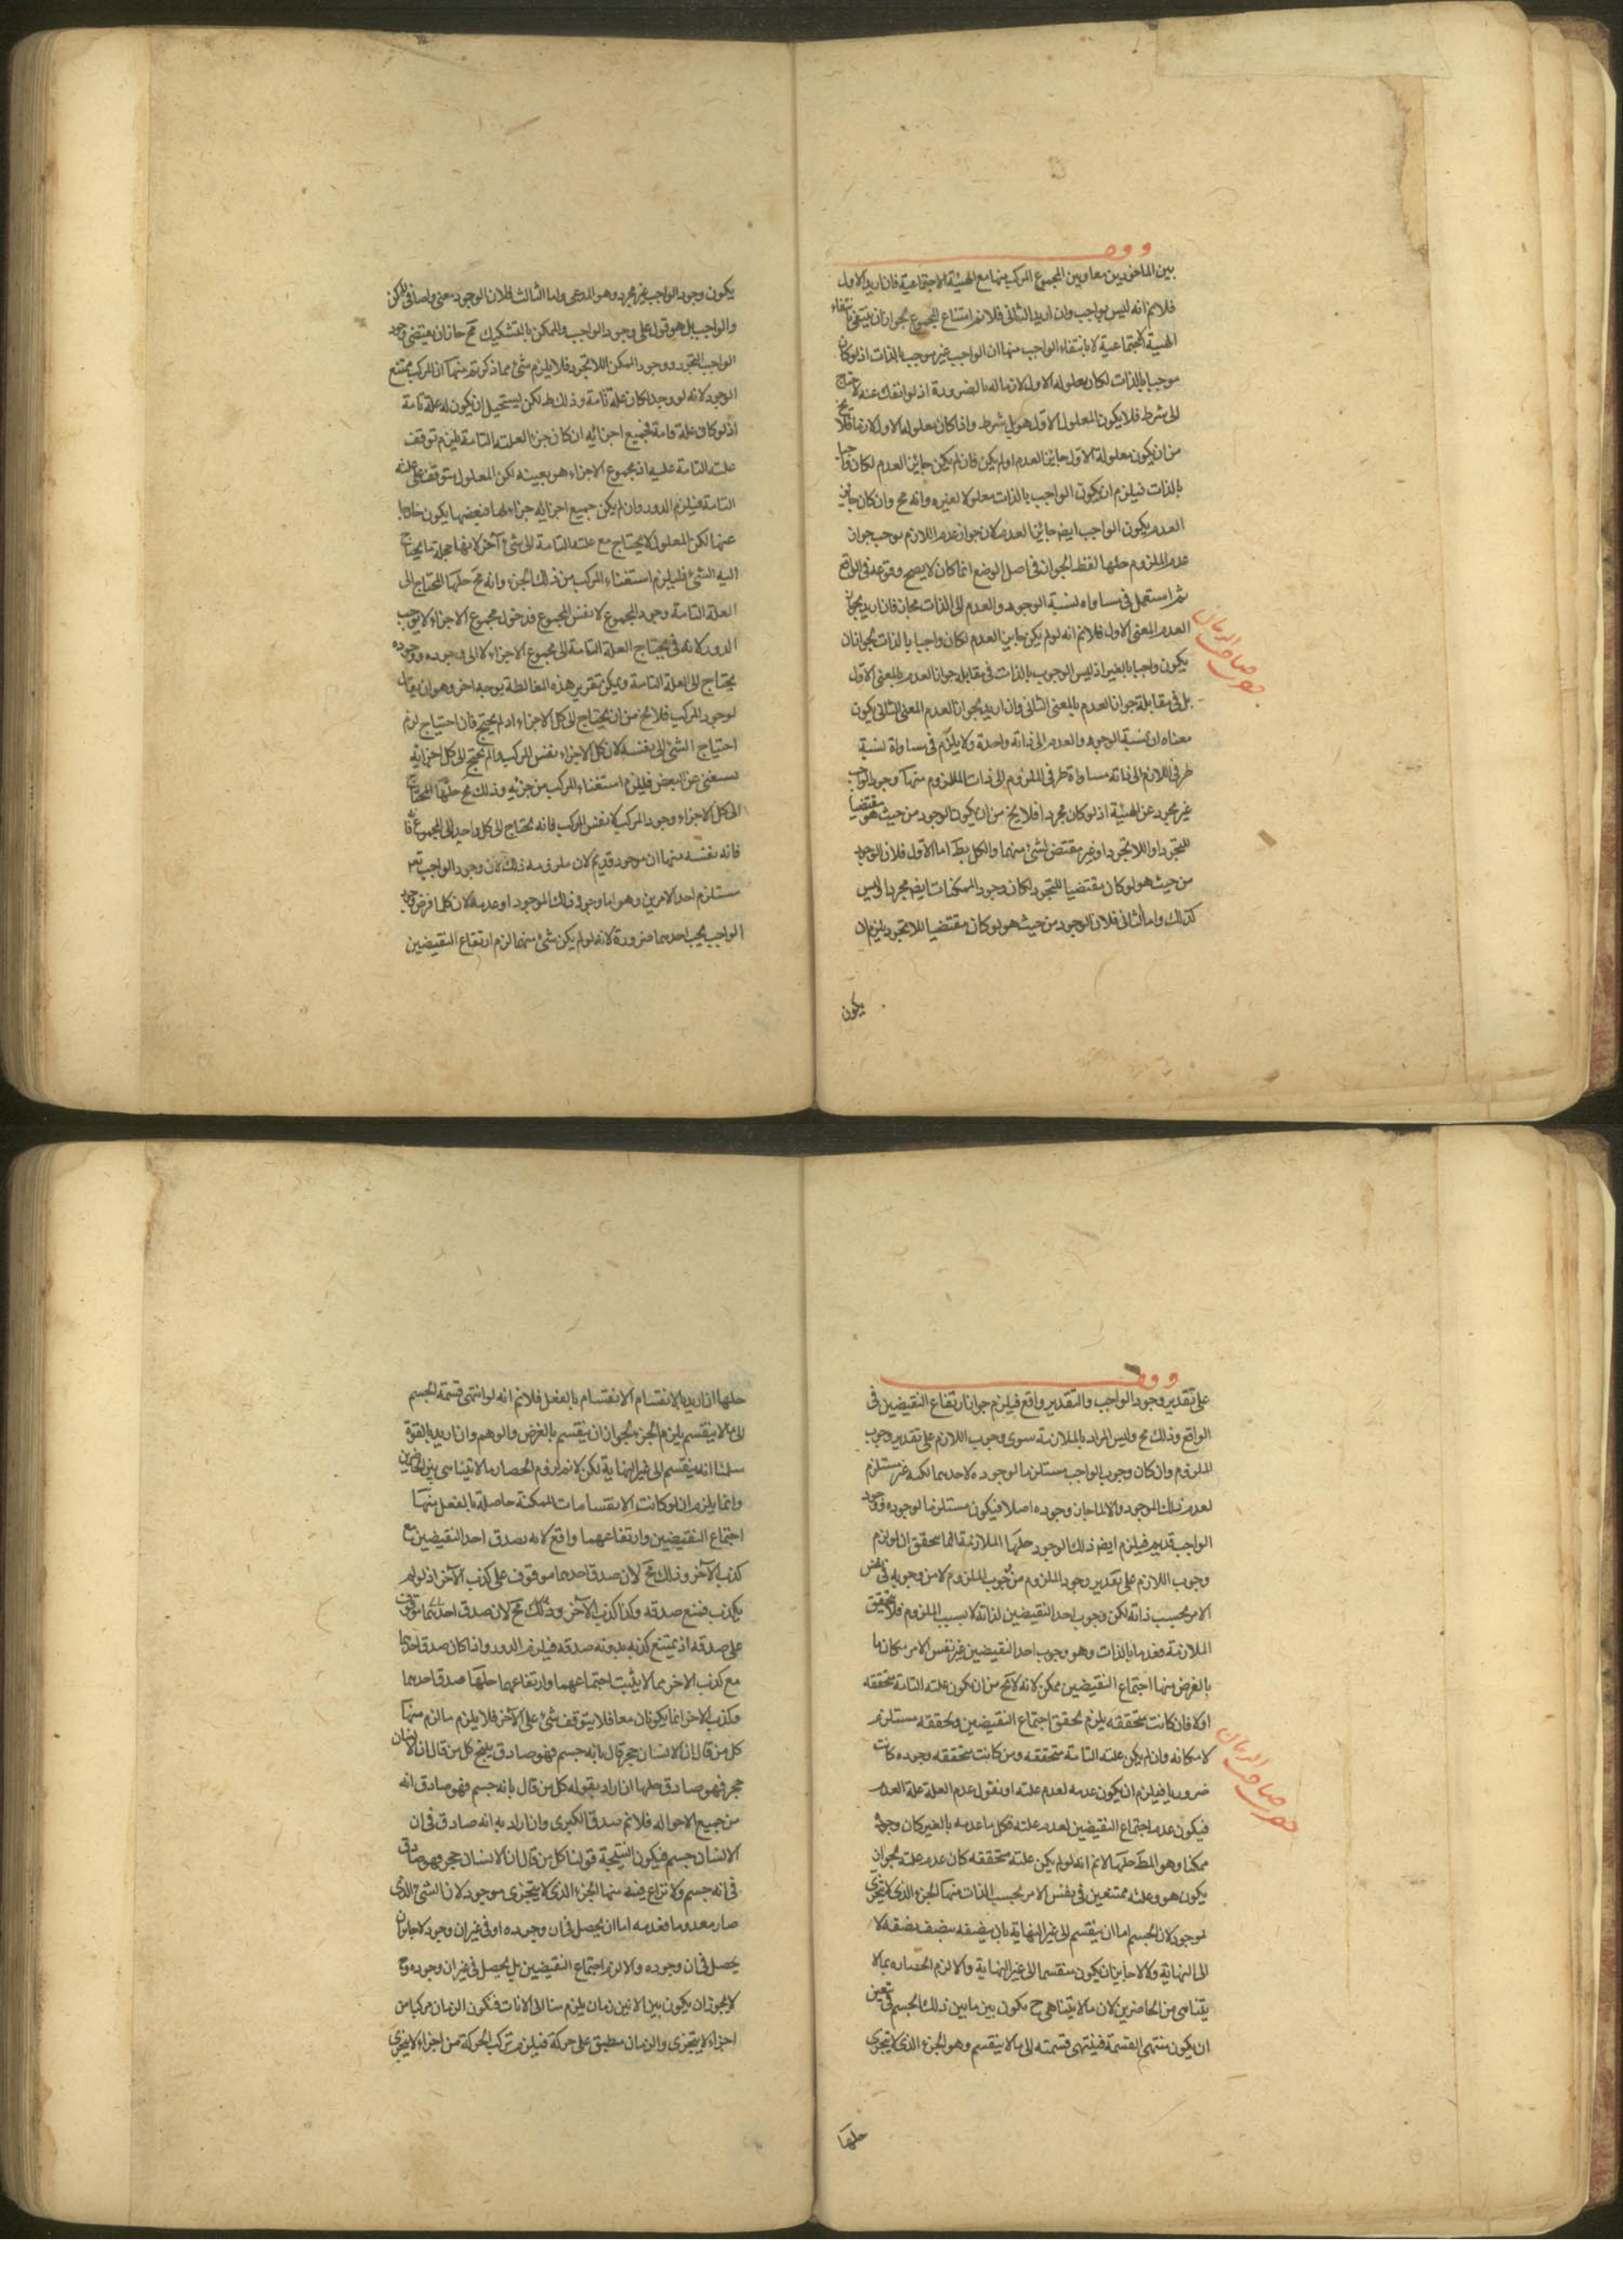 بين الماخوذين معا وبين المجموع المركب منهما مع الهيئة الاجتماعية فان اريد الاول
فلانم انه ليس بواجب وان اريد الثانى فلانم امتناع المجموع لجواز ان ينتفى بانتفاء
الهيئة الاجتماعية لا بانتفاء الواجب منها ان الواجب غير موجب بالذات اذ لو كان
موجبا بالذات لكان معلوله الاول لازما له بالضرورة اذ لو انفك عنه لاحتاج
الى شرط فلا يكون المعلول الاول هو بل شرط واذا كان معلوله الاول لازما فلا يخ
من ان يكون معلوله الاول جائز العدم او لم يكن فان لم يكن جائز العدم لكان واجبا
بالذات فيلزم ان يكون الواجب بالذات معلولا لغيره وانه مح وان كان جائز
العدم يكون الواجب ايضا جائز العدم لان جواز عدم اللازم يوجب جواز
عدم الملزوم حلها لفظ الجواز فى اصل الوضع انما كان لا يصح وقوعه فى الواقع
ثم استعمل فى مساواه نسبة الوجود والعدم الى الذات مجاز فان اريد بجواز
العدم المعنى الاول فلانم انه لو لم يكن جايز العدم لكان واجبا بالذات لجواز ان
يكون واجبا بالغير اذ ليس الوجوب بالذات فى مقابلة جواز العدم بالمعنى الاول
بل فى مقابلة جواز العدم بالمعنى الثانى وان اريد بجواز العدم المعنى الثانى يكون
معناه ان نسبة الوجود والعدم الى ذاته واحدة ولا يلزم فى مساواة نسبة
طرفى اللازم الى ذاته مساواة طرفى الملزوم الى ذات الملزوم منها وجود الواجب
غير مجرد عن الهيئة اذ لو كان مجردا فلا يخ من ان يكون الوجود من حيث هو مقتضيا
للتجرد او اللاتجرد او غير مقتض لشئ منهما والكل بط اما الاول فلان الوجود
من حيث هو لو كان مقتضيا للتجرد لكان وجود الممكنات ايضا مجردا وليس
كذلك واما الثانى فلان الوجود من حيث هو لو كان مقتضيا للاتجرد يلزم ان
يكون
يكون وجود الواجب غير مجرد وهو المدعى واما الثالث فلان الوجود معنى واحد فى الممكن
والواجب بل هو مقول على وجود الواجب والممكن بالتشكيك مح جاز ان يقتضى وجود
الواجب التجرد ووجود الممكن اللاتجرد فلا يلزم شئ مما ذكرتم منها ان المركب ممتنع
الوجود لانه لو وجد لكان علة تامة وذلك ط لكن يستحيل ان يكون له علة تامة
اذ لو كان علة تامة فجميع اجزائه ان كان جزء العلة التامة يلزم توقف
علته التامة عليه اذ مجموع الاجزاء هو بعينه لكن المعلول يتوقف على علته
التامة فيلزم الدور وان لم يكن جميع اجزائه جزاء لها فبعضها يكون خارجا
عنها لكن المعلول لا يحتاج مع علته التامة الى شئ آخر لانها جملة ما يحتاج
اليه الشئ فيلزم استغناء المركب من ذلك الجزء وانه مح حلها المحتاج الى
العلة التامة وجود المجموع لا نفس المجموع فدخول مجموع الاجزاء لا يوجب
الدور لانه فى يحتاج العلة التامة الى مجموع الاجزاء لا الى وجوده ووجوده
يحتاج الى العلة التامة ويمكن تقرير هذه المغالطة بوجه اخر وهو ان يقال
لو وجد المركب فلا يخ من ان يحتاج الى كل الاجزاء او لم يحتج فان احتياج لزم
احتياج الشئ الى نفسه لان كل الاجزاء نفس المركب وان لم يحتج الى كل اجزائه
يستغنى عن البعض فيلزم استغناء المركب من جزئه وذلك مح حلها المحتاج
الى كل الاجزاء وجود المركب لا نفس المركب فانه يحتاج الى كل واحد لا الى المجموع
فانه نفسه منها ان موجود قديم لان ملزومه ذلك لان وجود الواجب تع
مستلزم احد الامرين وهو اما وجود ذلك الموجود او عدمه لان كلما فرض وجود
الواجب يجب احدهما ضرورة لانه لو لم يكن شئ منهما لزم ارتفاع النقيضين
على تقدير وجود الواجب والتقدير واقع فيلزم جواز ارتفاع النقيضين فى
الواقع وذلك مح وليس المراد بالملازمة سوى وجوب اللازم على تقدير وجوب
الملزوم وان كان وجوب الواجب مستلزما لوجوده لاحدهما لكنه غير مستلزم
لعدم ذلك الموجود والا لما جاز وجوده اصلا فيكون مستلزما لوجوده ووجود
الواجب قديم فيلزم ايضا ذلك الوجود حلها الملازمة انما يتحقق ان لو لزم
وجوب اللازم على تقدير وجود الملزوم من وجوب الملزوم لا من وجوبه فى نفس
الامر بحسب ذاته لكن وجوب احد النقيضين لذاته لا بسبب الملزوم فلا يتحقق
الملازمة فعدمها بالذات وهو وجوب احد النقيضين غير نفس الامر مكان ما
بالغرض منها اجتماع النقيضين ممكن لانه لا يخ من ان يكون علته التامة متحققة
اولا فان كانت متحققة يلزم تحقق اجتماع النقيضين وتحققه مستلزم
لامكانه وان لم يكن علته التامة متحققة ومن كانت متحققة وجوده كانت
ضروريا فيلزم ان يكون عدمه لعدم علته او نقول عدم العلة علة العدم
فيكون عدم اجتماع النقيضين لعدم علته فكل ما عدمه بالغير كان وجوده
ممكنا وهو المط حلها لانم انه لو لم يكن علته متحققة كان عدم علته لجواز ان
يكون هو وعلته ممتنعين فى نفس الامر بحسب الذات منها الجزء الذى لا يتجزى
موجود لان الجسم اما ان ينقسم الى غير النهاية بان نصفه بنصف نصفه لا
الى النهاية ولا لا جايز ان يكون منقسما الى غير النهاية والا لزم انحصار ما لا
يتناهى من الحاضرين لان ما لا يتناهى ح يكون بين ما بين ذلك الجسم فتعين
ان يكون منتهى القسمة فينتهى قسمته الى ما لا ينقسم وهو الجزء الذى لا يتجزى
حلها
حلها ان اريد بالانقسام الانقسام بالفعل فلانم انه لو انتهى قسمة الجسم
الى ما لا ينقسم يلزم الجزء لجواز ان ينقسم بالفرض والوهم وان اريد بالقوة
سلمنا انه ينقسم الى غير النهاية لكن لانم لزوم انحصار ما لا يتناهى بين الحاضرين
وانما يلزم ان لو كانت الانقسامات الممكنة حاصلة بالفعل منها
اجتماع النقيضين وارتفاعهما واقع لانه يصدق احد النقيضين مع
كذب الآخر وذلك مح لان صدق احدهما موقوف على كذب الآخر اذ لو لم
يكذب فمنع صدقه وكذا كذب الآخر وذلك مح لان صدق احدهما يتوقف
على صدقه اذ يمتنع كذبه بدونه صدقه فيلزم الدور واذا كان صدق احدهما
مع كذب الاخر مما لا يثبت اجتماعهما وارتفاعهما حلها صدق احدهما
وكذب الاخر انما يكونان معا فلا يتوقف شئ على الآخر فلا يلزم ما لزم منها
كل من قال ان الانسان حجر قال بانه جسم فهو صادق ينتج كل من قال ان الانسان
حجر فهو صادق حلها ان اراد بقوله كل من قال بانه جسم فهو صادق انه
من جميع الاحوال فلانم صدق الكبرى وان اراد به انه صادق فى ان
الانسان جسم فيكون النتيجة قولنا كل من قال ان الانسان حجر فهو صادق
فى انه جسم ولا نزاع فيه منها الجزء الذى لا يتجزى موجود لان الشئ الذى
صار معدوما فعدمه اما ان يحصل فى ان وجوده او فى غير ان وجوده لا جايز ان
يحصل فى ان وجوده والا لزم اجتماع النقيضين بل يحصل فى غير ان وجوده وح
لا يجوز ان يكون بين الانين زمان يلزم تتالى الآنات فيكون الزمان مركبا من
اجزاء لا يتجزى والزمان منطبق على حركة فيلزم تركب الحركة من اجزاء لا يتجزى